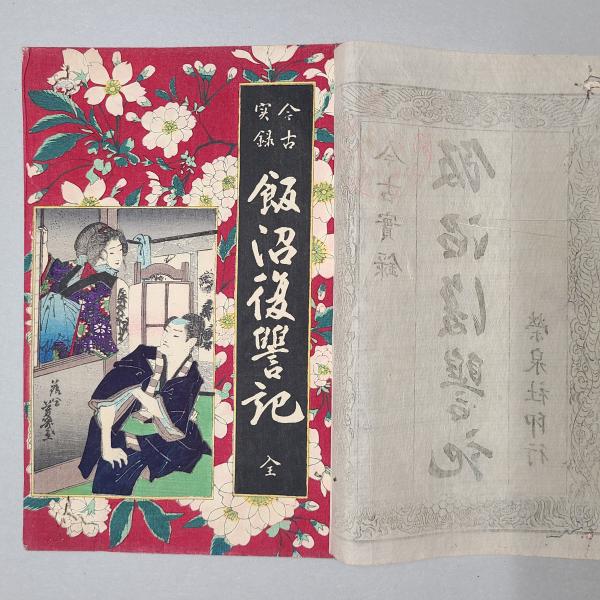 今古
実録
飯沼復讐記
全
落合芳幾画
今古實録
飯沼復讐記
榮泉社印行